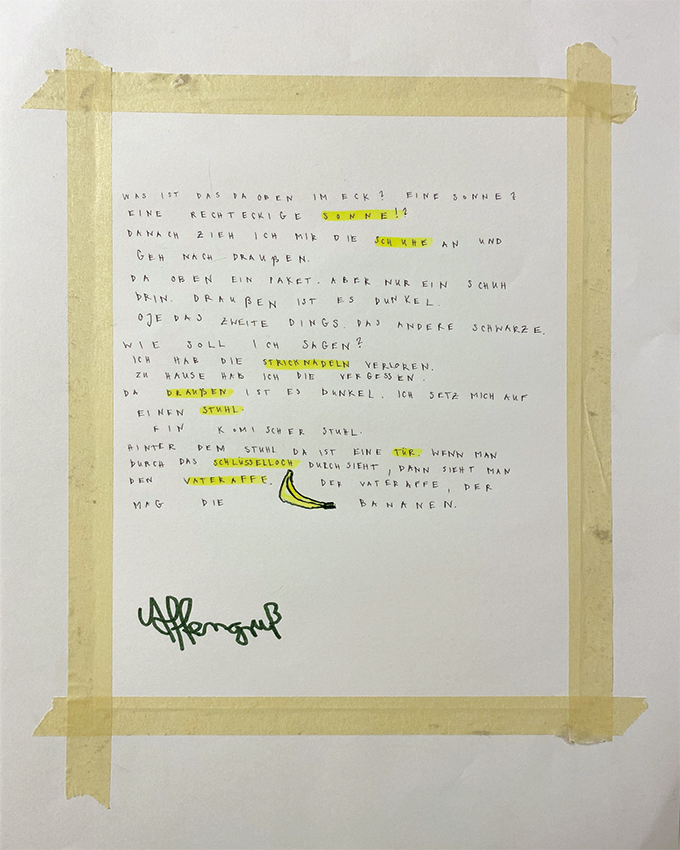 WAS IST DAS DA OBEN IM ECK? EINE SONNE?
EINE RECHTECKIGE SONNE!?
DANACH ZIEH ICH MIR DIE SCHUHE AN UND
GEH NACH DRAUßEN.
DA OBEN EIN PAKET. ABER NUR EIN SCHUH
DRIN. DRAUßEN IST ES DUNKEL.
OJE DAS ZWEITE DINGS. DAS ANDERE SCHWARZE.
WIE SOLL ICH SAGEN?
ICH HAB DIE STRICKNADELN VERLOREN.
ZU HAUSE HAB ICH DIE VERGESSEN.
DA DRAUßEN IST ES DUNKEL. ICH SETZ MICH AUF
EINEN STUHL.
EIN KOMISCHER STUHL.
HINTER DEM STUHL DA IST EINE TÜR. WENN MAN
DURCH DAS SCHLÜSSELLOCH DURCHSIEHT, DANN SIEHT MAN
DEN VATERAFFE. DER VATERAFFE, DER
MAG DIE BANANEN.
Affengruß